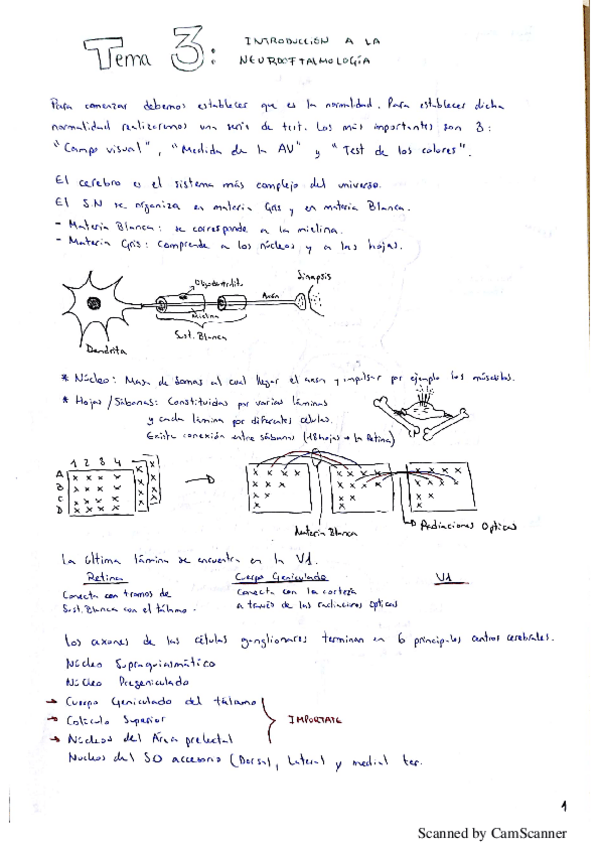 Tema 3: INTRODUCCIÓN A LA
NEUROOFTALMOLOGÍA
Para comenzar debemos establecer que es la normalidad. Para establecer dicha
normalidad realizaremos una serie de test. Los más importantes son 3:
"Campo visual", "Medida de la AV" y "Test de los colores".
El cerebro es el sistema más complejo del universo.
El S.N se organiza en materia Gris y en materia Blanca.
- Materia Blanca: se corresponde a la mielina.
- Materia Gris: Comprende a los núcleos y a las hojas.
Oligodendrocito
Sinapsis
Axón
Mielina
Sust. Blanca
Dendrita
* Núcleo: Masa de somas al cual llegan el axón y impulsan por ejemplo los músculos.
* Hojas/Sábanas: Constituidas por varias láminas
y cada lámina por diferentes células.
Existe conexión entre sábanas (1ª hojas → la Retina)
1 2 3 4
A x x x x
B x x x x
C x x x x
D x x x x
Materia Blanca
Radiaciones Opticas
La última lámina se encuentra en la V1.
Retina Cuerpo Geniculado V1
Conecta con tramos de Conecta con la corteza
Sust. Blanca con el tálamo. a través de las radiaciones opticas
Los axones de las células ganglionares terminan en 6 principales centros cerebrales.
Núcleo Supraquiasmático
Núcleo Pregeniculado
→ Cuerpo Geniculado del tálamo
→ Colículo Superior IMPORTATE
→ Núcleos del Área pretectal
Nucleos del SO accesorio (Dorsal, Lateral y medial ter.
1
Scanned by CamScanner